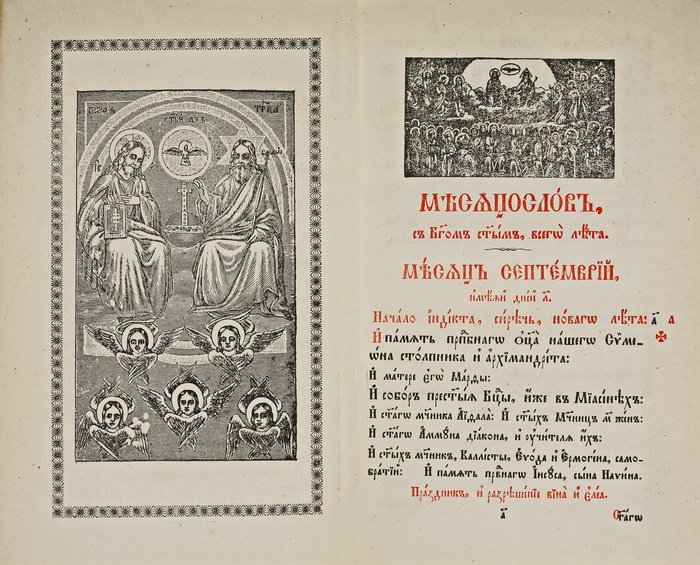 СТ҃ЫЙ ДХ҃Ъ
МѢ́СѦЦОСЛО́ВЪ,
съ Бг҃омъ ст҃ы́мъ, всегѡ̀ лѣ́та.
МѢ́СѦЦЪ СЕПТЕ́МВРІЙ,
и҆мѣ́ѧй дні́й л҃.
Нача́ло і҆нді́кта, си́рѣчь, но́вагѡ лѣ́та: а҃ а
И҆ па́мѧть прпⷣбнагѡ ѻ҆ц҃а̀ на́шегѡ Сѷмеѡ́на сто́лпника и҆ а҆рхїмандрі́та:
И҆ ма́тере є҆гѡ̀ Ма́рѳы:
И҆ собо́ръ прест҃ы́ѧ Бцⷣы, и҆́же въ Мїасі́нѣхъ:
И҆ ст҃а́гѡ мч҃ника А҆їѳала̀: И҆ ст҃ы́хъ Мч҃ницъ м҃ же́нъ:
И҆ ст҃а́гѡ А҆ммꙋ́на дїа́кона, и҆ ᲂу҆чи́телѧ и҆́хъ:
И҆ ст҃ы́хъ мч҃никъ, Каллі́сты, Є҆вѻ́да и҆ Є҆рмоге́на, само-
бра́тїй: И҆ па́мѧть првⷣнагѡ І҆исꙋ́са, сы́на Наѵи́на.
Пра́здникъ, и҆ разрѣше́нїе вїна̀ и҆ є҆ле́а.
а҃ Ст҃а́гѡ